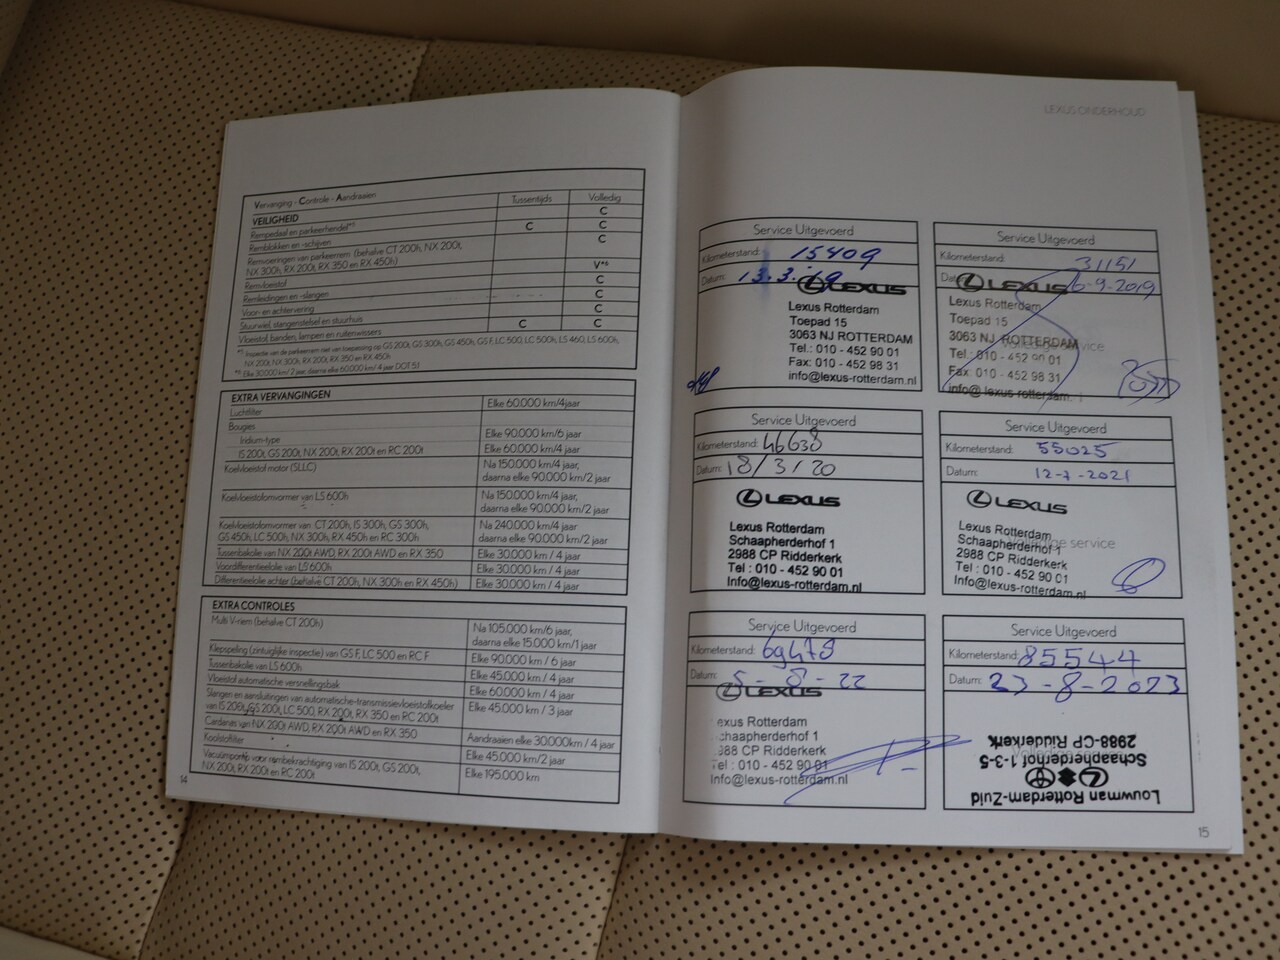 Vervanging - Controle - Aandraaien Tussentijds Volledig
VEILIGHEID C
Rempedaal en parkeerhendel*¹ C C
Remblokken en -schijven C
Remvoeringen van parkeerrem (behalve CT 200h, NX 200t,
NX 300h, RX 200t, RX 350 en RX 450h) V*⁶
Remvloeistof C
Remleidingen en -slangen C
Voor- en achtervering C
Stuurwiel, stangenstelsel en stuurhuis C C
Vloeistof, banden, lampen en ruitenwissers
NX 200t, NX 300h, RX 200t, RX 350 en RX 450h
Elke 30.000 km/ 2 jaar, daarna elke 60.000 km/ 4 jaar DOT 5.1
EXTRA VERVANGINGEN
Luchtfilter Elke 60.000 km/4jaar
Bougies
Iridium-type Elke 90.000 km/6 jaar
IS 200t, GS 200t, NX 200t, RX 200t en RC 200t Elke 60.000 km/4 jaar
Koelvloeistof motor (SLLC) Na 150.000 km/4 jaar,
daarna elke 90.000 km/2 jaar
Koelvloeistofomvormer van LS 600h Na 150.000 km/4 jaar,
daarna elke 90.000 km/2 jaar
Koelvloeistofomvormer van CT 200h, IS 300h, GS 300h,
GS 450h, LC 500h, NX 300h, RX 450h en RC 300h Na 240.000 km/4 jaar
daarna elke 90.000 km/2 jaar
Tussenbakolie van NX 200t AWD, RX 200t AWD en RX 350 Elke 30.000 km / 4 jaar
Voordifferentieelolie van LS 600h Elke 30.000 km / 4 jaar
Differentieelolie achter (behalve CT 200h, NX 300h en RX 450h) Elke 30.000 km / 4 jaar
EXTRA CONTROLES
Multi V-riem (behalve CT 200h) Na 105.000 km/6 jaar,
daarna elke 15.000 km/1 jaar
Klepspeling (zintuiglijke inspectie) van GS F, LC 500 en RC F Elke 90.000 km / 6 jaar
Tussenbakolie van LS 600h Elke 45.000 km / 4 jaar
Vloeistof automatische versnellingsbak Elke 60.000 km / 4 jaar
Slangen en aansluitingen van automatische-transmissievloeistofkoeler
van IS 200t, GS 200t, LC 500, RX 200t, RX 350 en RC 200t Elke 45.000 km / 3 jaar
Cardanas van NX 200t AWD, RX 200t AWD en RX 350 Aandraaien elke 30.000km / 4 jaar
Koolstoffilter Elke 45.000 km/2 jaar
Vacuümpomp voor rembekrachtiging van IS 200t, GS 200t,
NX 200t, RX 200t en RC 200t Elke 195.000 km
14
LEXUS ONDERHOUD
Service Uitgevoerd
Kilometerstand: 15409
Datum: 13.3.19
LEXUS
Lexus Rotterdam
Toepad 15
3063 NJ ROTTERDAM
Tel.: 010 - 452 90 01
Fax: 010 - 452 98 31
info@lexus-rotterdam.nl
Service Uitgevoerd
Kilometerstand: 31151
6-9-2019
LEXUS
Lexus Rotterdam
Toepad 15
3063 NJ ROTTERDAM
Volledige service
Tel.: 010 - 452 90 01
Fax: 010 - 452 98 31
info@lexus-rotterdam.
Service Uitgevoerd
Kilometerstand: 46638
Datum: 18/3/20
LEXUS
Lexus Rotterdam
Schaapherderhof 1
2988 CP Ridderkerk
Tel : 010 - 452 90 01
Info@lexus-rotterdam.nl
Service Uitgevoerd
Kilometerstand: 55025
Datum: 12-7-2021
LEXUS
Lexus Rotterdam
Schaapherderhof 1
Volledige service
2988 CP Ridderkerk
Tel : 010 - 452 90 01
Info@lexus-rotterdam.nl
Service Uitgevoerd
Kilometerstand: 69478
Datum: 5-8-22
LEXUS
exus Rotterdam
chaapherderhof 1
988 CP Ridderkerk
Tel : 010 - 452 90 01
Info@lexus-rotterdam.nl
Service Uitgevoerd
Kilometerstand: 85544
Datum: 23-8-2023
Louwman Rotterdam-Zuid
Schaapherderhof 1-3-5
2988-CP Ridderkerk
15